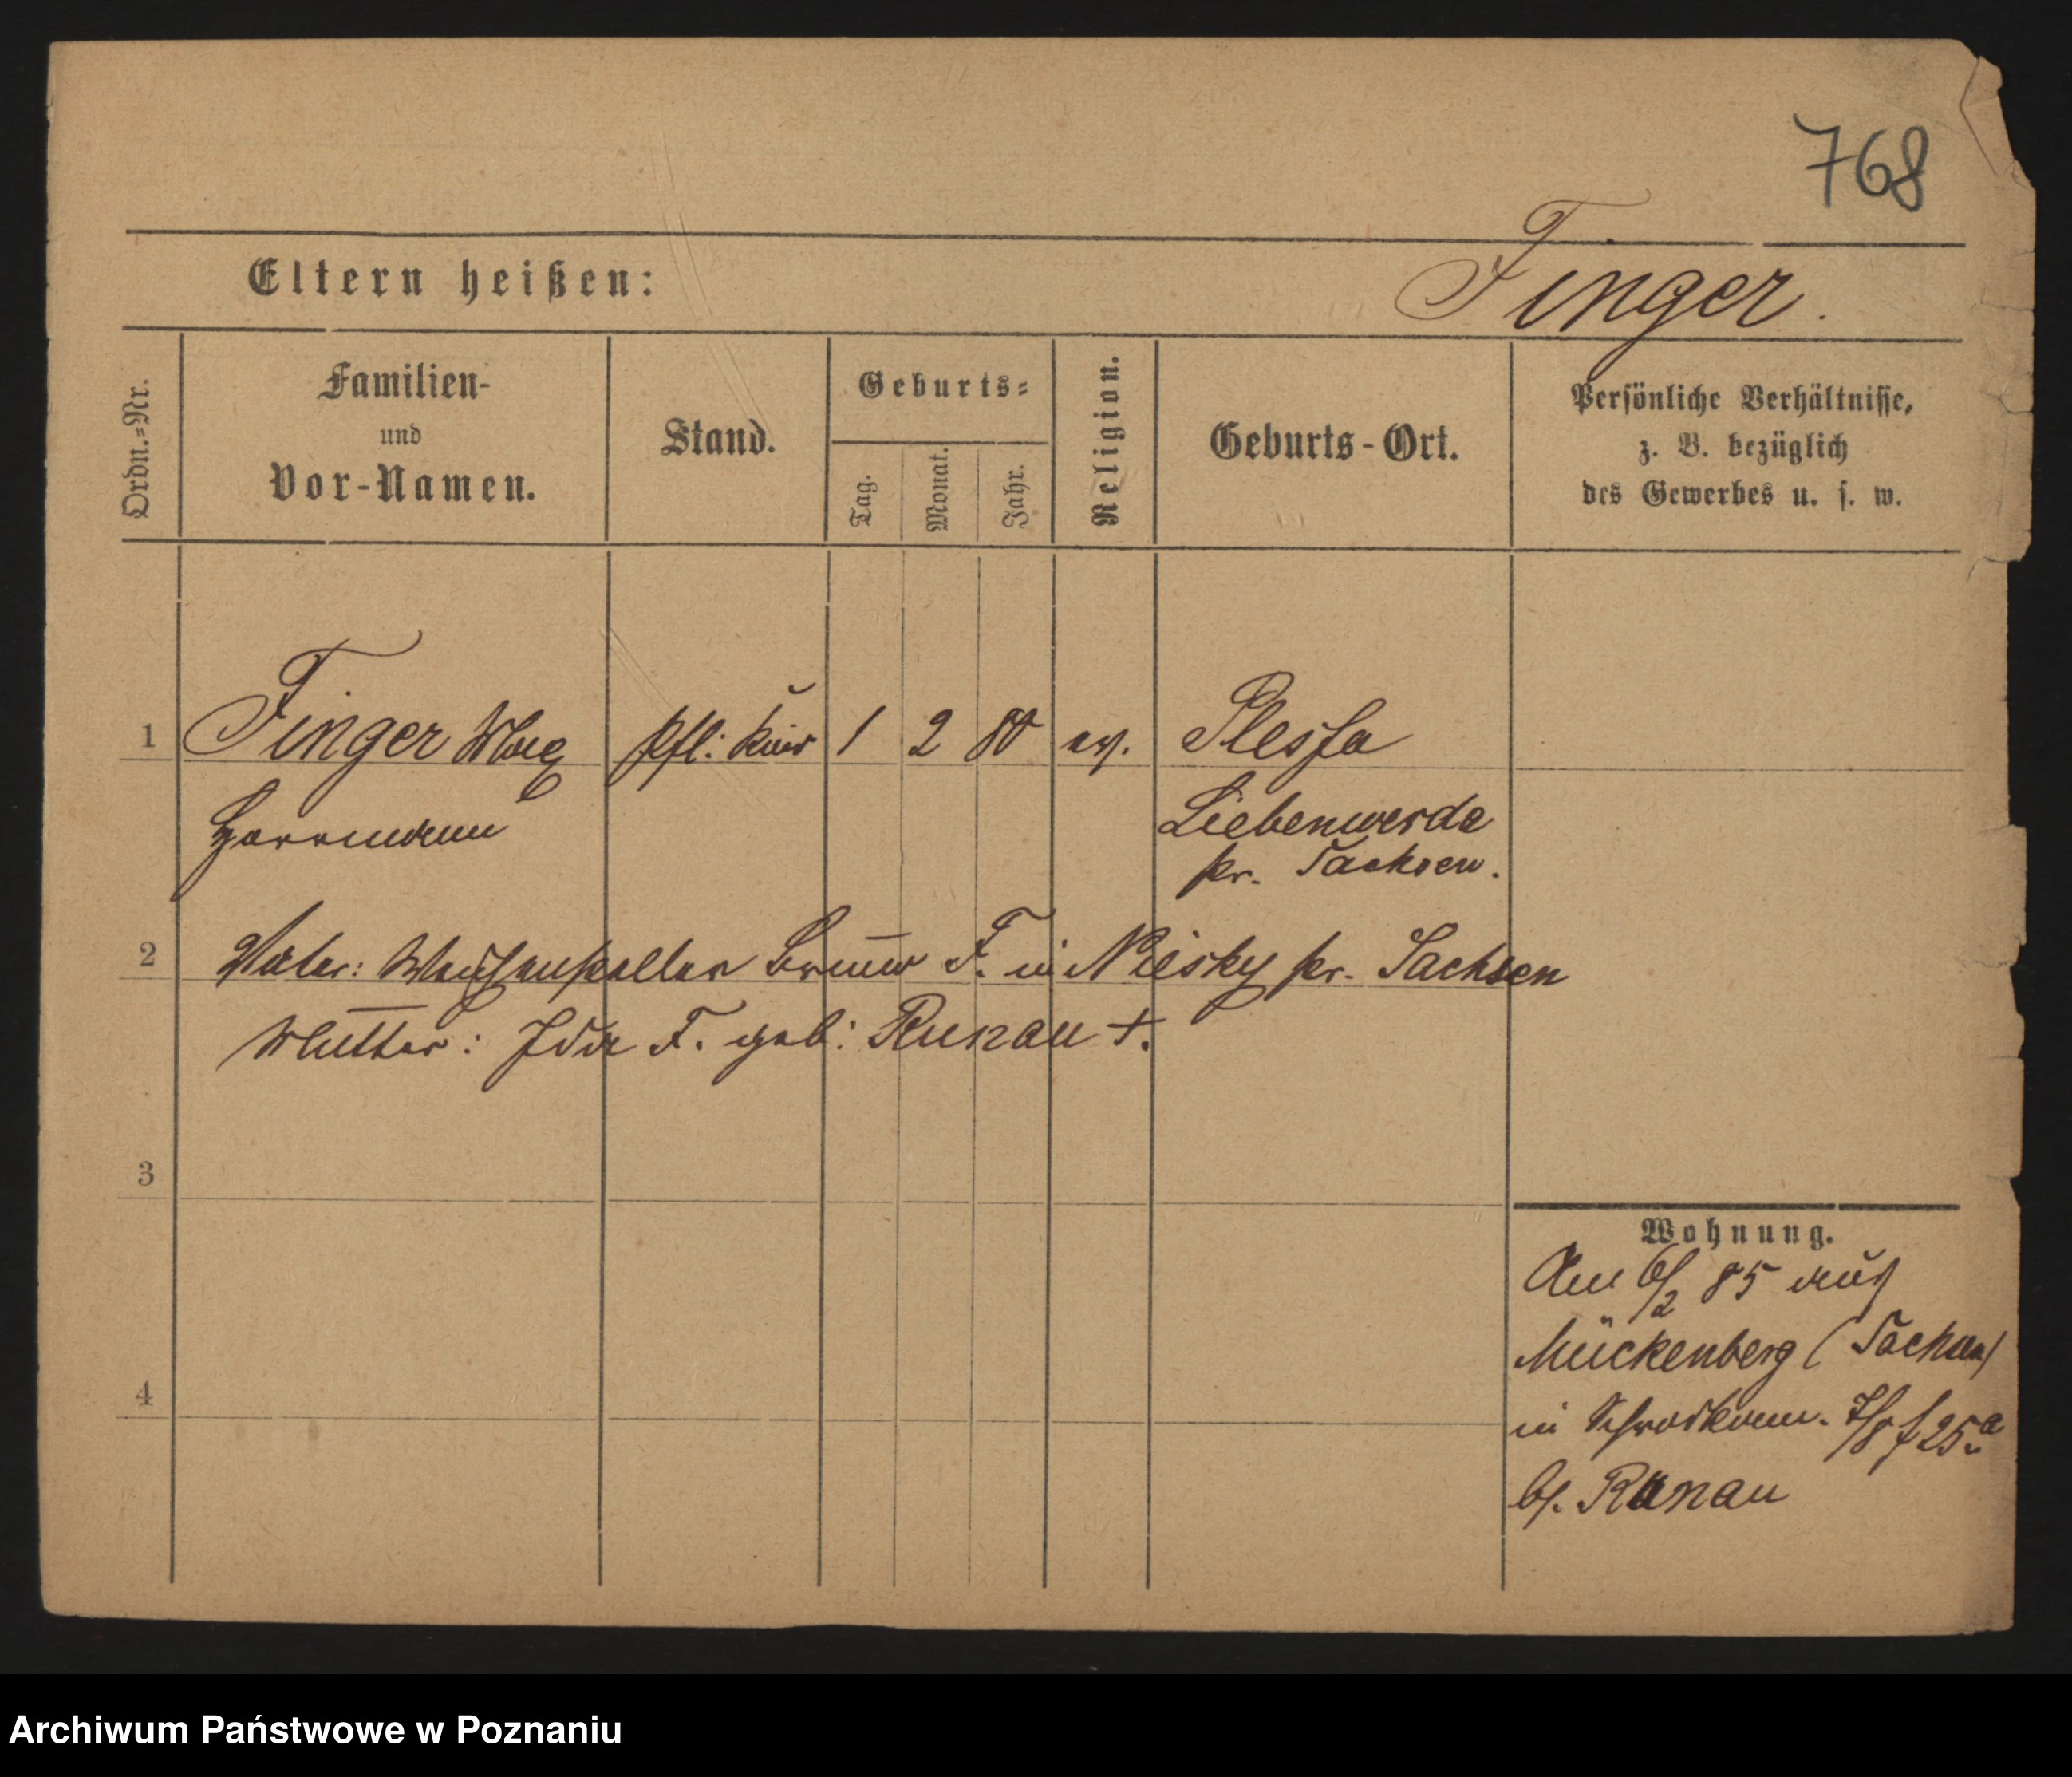 768
Eltern heißen:
Finger.
Ordn.=Nr.
Familien-
und
Vor-Namen.
Stand.
Geburts=
Tag.
Monat.
Jahr.
Religion.
Geburts-Ort.
Persönliche Verhältnisse,
z. B. bezüglich
des Gewerbes u. s. w.
1 Finger Max Pfl: Kind 1 2 80 ev. Plessa
Herrmann Liebenwerda
pr. Sachsen.
2 Vater: Bruno F. in Niesky pr. Sachsen
Mutter: Ida F. geb: Runau +.
3
Wohnung.
Am 6/2 85 aus
Mückenberg (Sachsen)
4
in 7/8 f 25a
b/. Runau
Archiwum Państwowe w Poznaniu